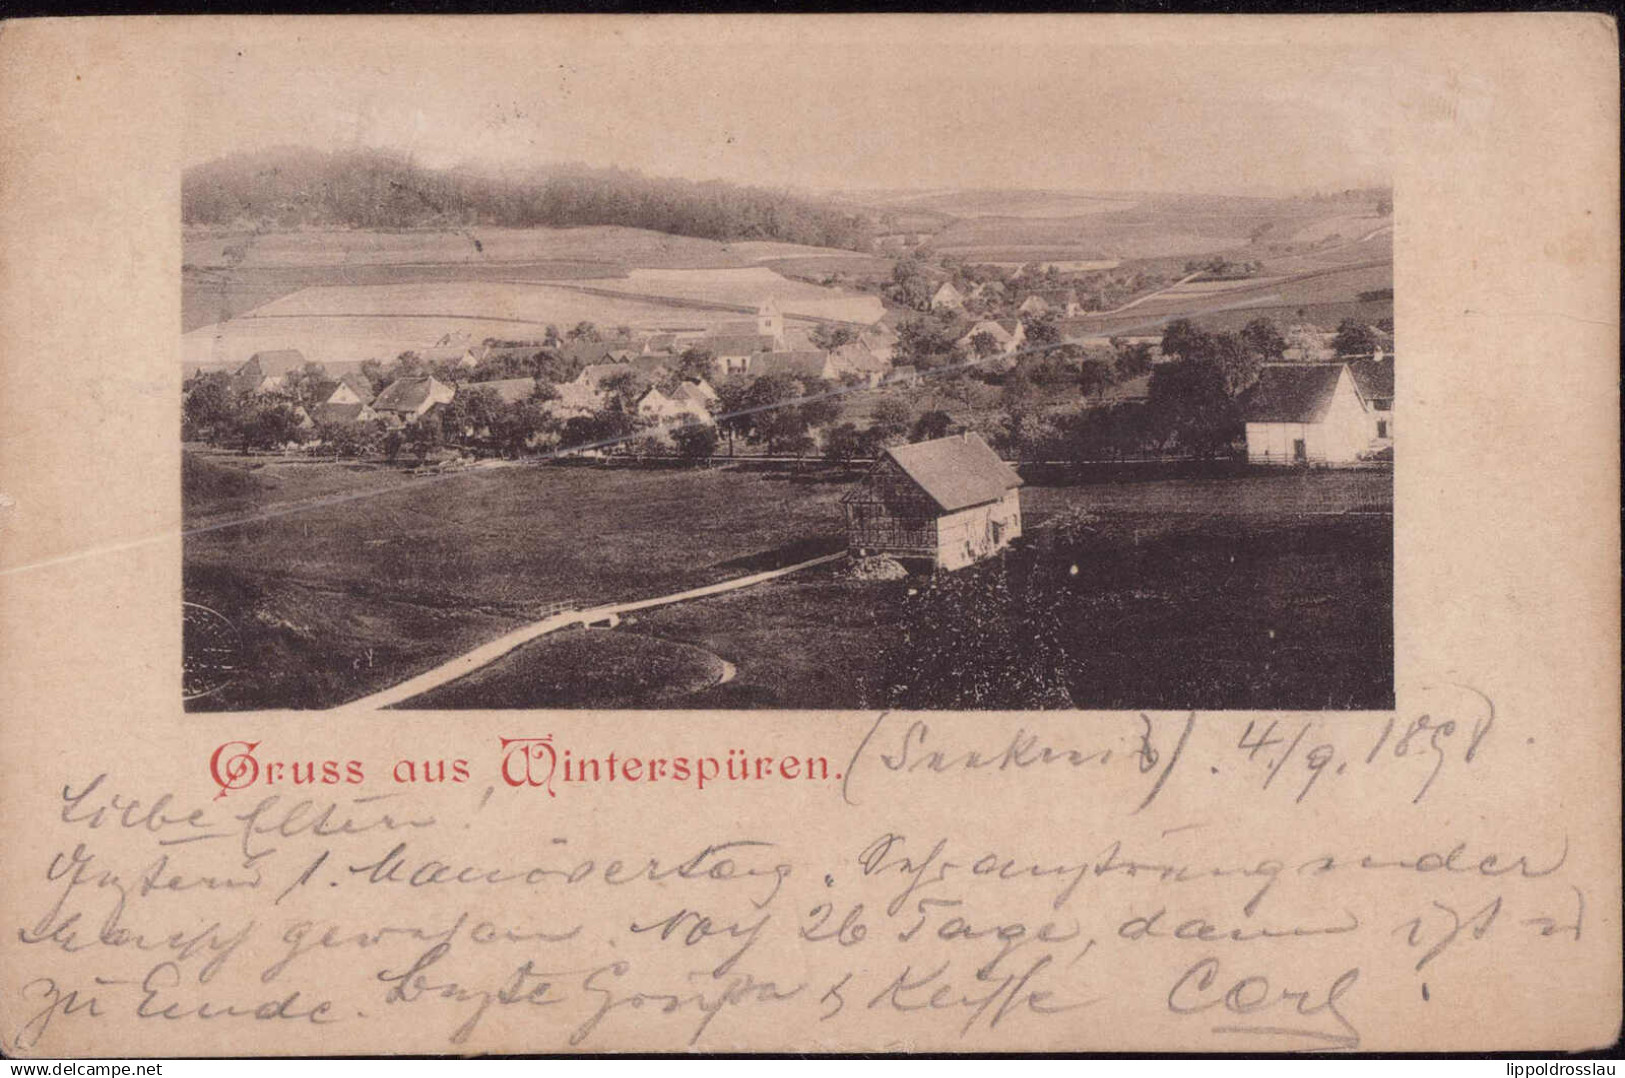 Gruss aus Winterspüren. (Seekreis). 4./9. 1898.
Liebe Eltern!
Gestern 1. Manövertag. Sehr anstrengender
Marsch gewesen. Noch 26 Tage, dann ist es
zu Ende. Beste Grüsse & Küsse Carl.
Akpool.de
lippoldrosslau